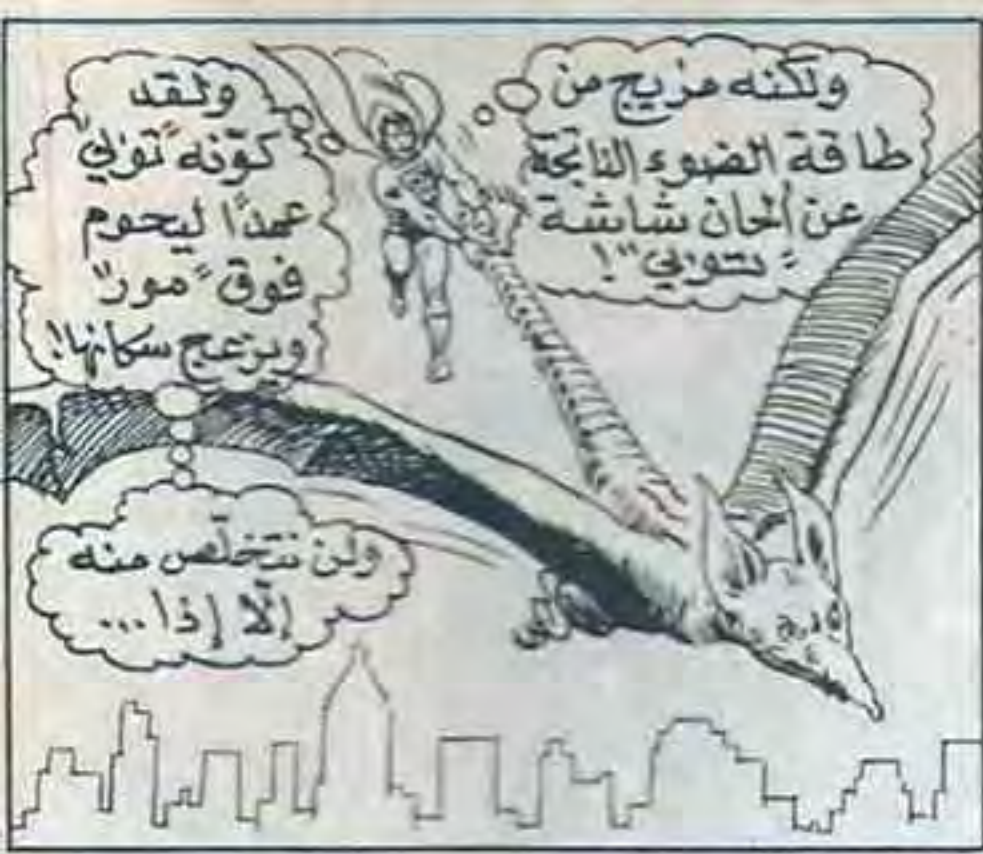 ولكنه مزيج من
طاقة الضوء الناتجة
عن ألحان شاشة
"تتولي"!
ولقد
كوّنه "تولي"
عمدًا ليحوم
فوق "مور"
ويزعج سكانها!
ولن نتخلّص منه
إلّا إذا...